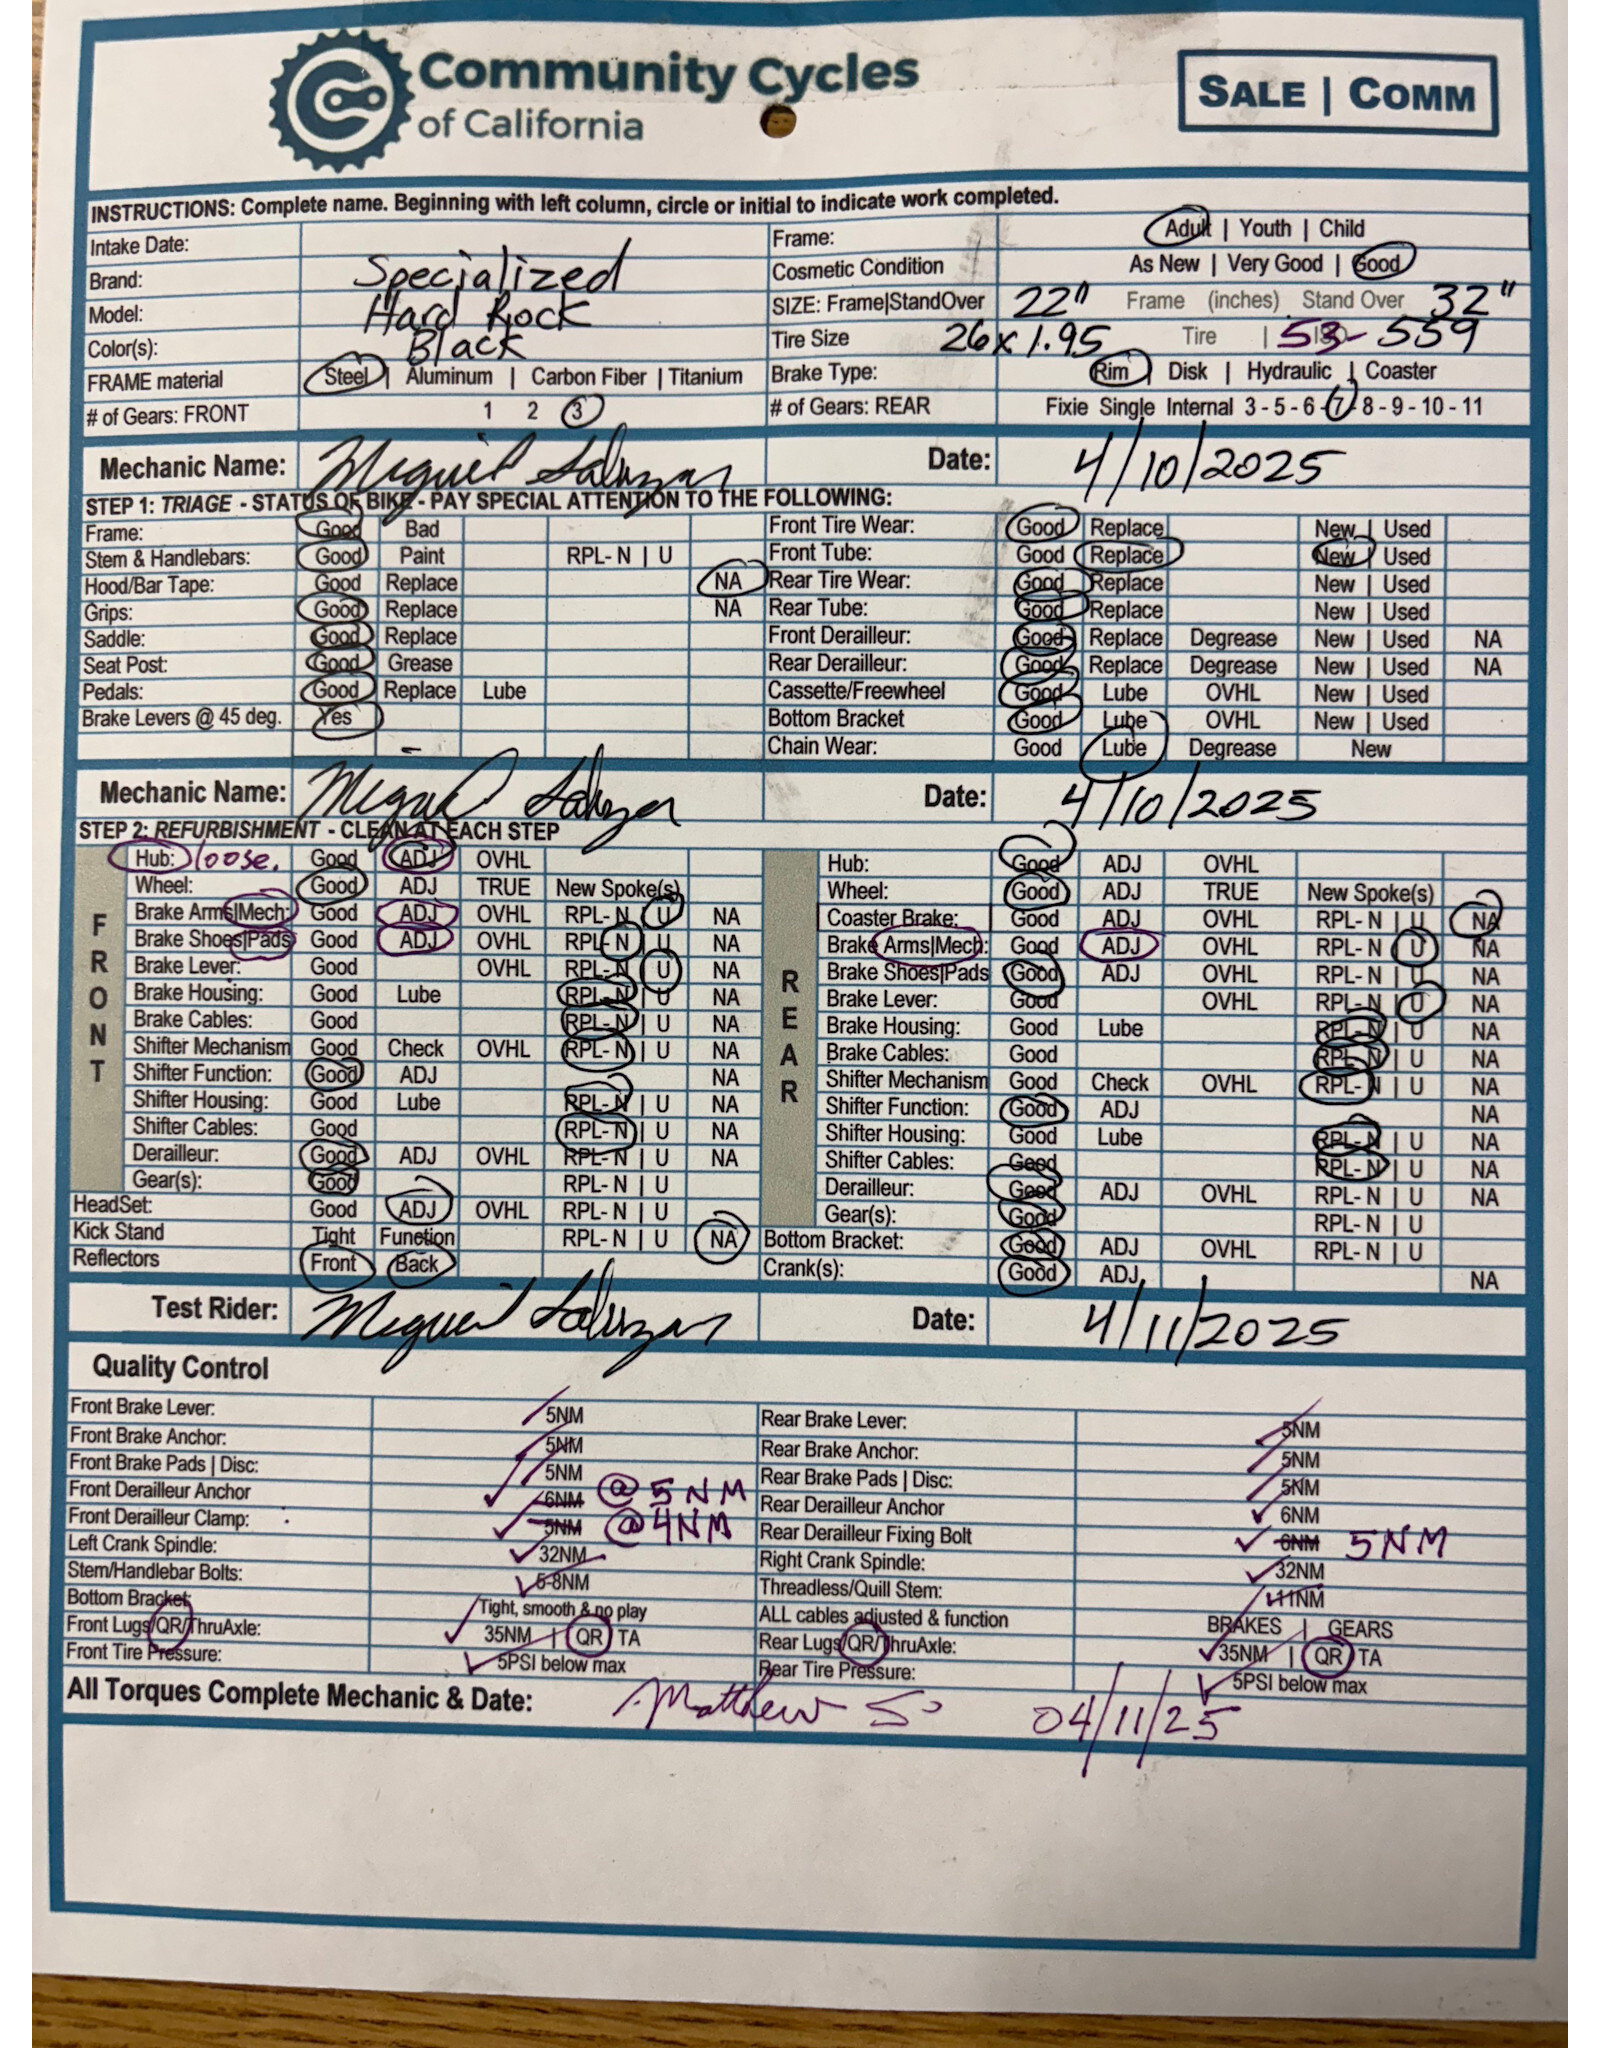 Community Cycles
of California
SALE | COMM
INSTRUCTIONS: Complete name. Beginning with left column, circle or initial to indicate work completed.
Intake Date: Frame: Adult | Youth | Child
Brand: Specialized Cosmetic Condition As New | Very Good | Good
Model: Hard Rock SIZE: Frame|StandOver 22" Frame (inches) Stand Over 32"
Color(s): Black Tire Size 26x1.95 Tire | 53-559
FRAME material Steel | Aluminum | Carbon Fiber | Titanium Brake Type: Rim | Disk | Hydraulic | Coaster
# of Gears: FRONT 1 2 3 # of Gears: REAR Fixie Single Internal 3 - 5 - 6 - 7 - 8 - 9 - 10 - 11
Mechanic Name: Miguel Salazar Date: 4/10/2025
STEP 1: TRIAGE - STATUS OF BIKE - PAY SPECIAL ATTENTION TO THE FOLLOWING:
Frame: Good Bad Front Tire Wear: Good Replace New | Used
Stem & Handlebars: Good Paint RPL- N | U Front Tube: Good Replace New | Used
Hood/Bar Tape: Good Replace NA Rear Tire Wear: Good Replace New | Used
Grips: Good Replace NA Rear Tube: Good Replace New | Used
Saddle: Good Replace Front Derailleur: Good Replace Degrease New | Used NA
Seat Post: Good Grease Rear Derailleur: Good Replace Degrease New | Used NA
Pedals: Good Replace Lube Cassette/Freewheel Good Lube OVHL New | Used
Brake Levers @ 45 deg. Yes Bottom Bracket Good Lube OVHL New | Used
Chain Wear: Good Lube Degrease New
Mechanic Name: Miguel Salazar Date: 4/10/2025
STEP 2: REFURBISHMENT - CLEAN AT EACH STEP
FRONT
Hub: loose. Good ADJ OVHL
Wheel: Good ADJ TRUE New Spoke(s)
Brake Arms|Mech: Good ADJ OVHL RPL- N | U NA
Brake Shoes|Pads Good ADJ OVHL RPL- N | U NA
Brake Lever: Good OVHL RPL- N | U NA
Brake Housing: Good Lube RPL- N | U NA
Brake Cables: Good RPL- N | U NA
Shifter Mechanism Good Check OVHL RPL- N | U NA
Shifter Function: Good ADJ NA
Shifter Housing: Good Lube RPL- N | U NA
Shifter Cables: Good RPL- N | U NA
Derailleur: Good ADJ OVHL RPL- N | U NA
Gear(s): Good RPL- N | U
HeadSet: Good ADJ OVHL RPL- N | U
Kick Stand Tight Function RPL- N | U NA
Reflectors Front Back
REAR
Hub: Good ADJ OVHL
Wheel: Good ADJ TRUE New Spoke(s)
Coaster Brake: Good ADJ OVHL RPL- N | U NA
Brake Arms|Mech: Good ADJ OVHL RPL- N | U NA
Brake Shoes|Pads Good ADJ OVHL RPL- N | U NA
Brake Lever: Good OVHL RPL- N | U NA
Brake Housing: Good Lube RPL- N | U NA
Brake Cables: Good RPL- N | U NA
Shifter Mechanism Good Check OVHL RPL- N | U NA
Shifter Function: Good ADJ NA
Shifter Housing: Good Lube RPL- N | U NA
Shifter Cables: Good RPL- N | U NA
Derailleur: Good ADJ OVHL RPL- N | U NA
Gear(s): Good RPL- N | U
Bottom Bracket: Good ADJ OVHL RPL- N | U
Crank(s): Good ADJ NA
Test Rider: Miguel Salazar Date: 4/11/2025
Quality Control
Front Brake Lever: 5NM Rear Brake Lever: 5NM
Front Brake Anchor: 5NM Rear Brake Anchor: 5NM
Front Brake Pads | Disc: 5NM Rear Brake Pads | Disc: 5NM
Front Derailleur Anchor 6NM @ 5NM Rear Derailleur Anchor 6NM
Front Derailleur Clamp: 5NM @ 4NM Rear Derailleur Fixing Bolt 6NM 5NM
Left Crank Spindle: 32NM Right Crank Spindle: 32NM
Stem/Handlebar Bolts: 5-8NM Threadless/Quill Stem: 11NM
Bottom Bracket: Tight, smooth & no play ALL cables adjusted & function BRAKES | GEARS
Front Lugs/QR/ThruAxle: 35NM | QR TA Rear Lugs/QR/ThruAxle: 35NM | QR TA
Front Tire Pressure: 5PSI below max Rear Tire Pressure: 5PSI below max
All Torques Complete Mechanic & Date: Matthew S 04/11/25